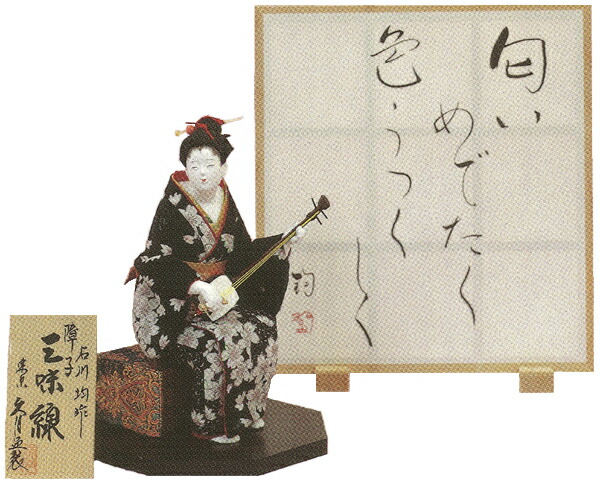 匂い
めでたく
色うつく
しく
均
石川 均作
障子
三味線
東京 久月監製